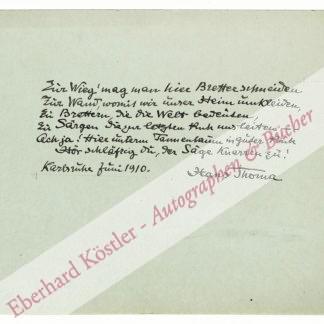 Zur Wieg' mag man hier Bretter schneiden
Zur Wand, womit wir unser Heim umkleiden,
Zu Brettern, die die Welt bedeuten,
Zu Särgen die zur letzten Ruh uns leiten,
Ach ja! Hier unterm Tannenbaum in guter Ruh
Hör schläfrig du, der Säge Knarren zu!
Karlsruhe Juni 1910. Hans Thoma
Eberhard Köstler - Autographen & Bücher